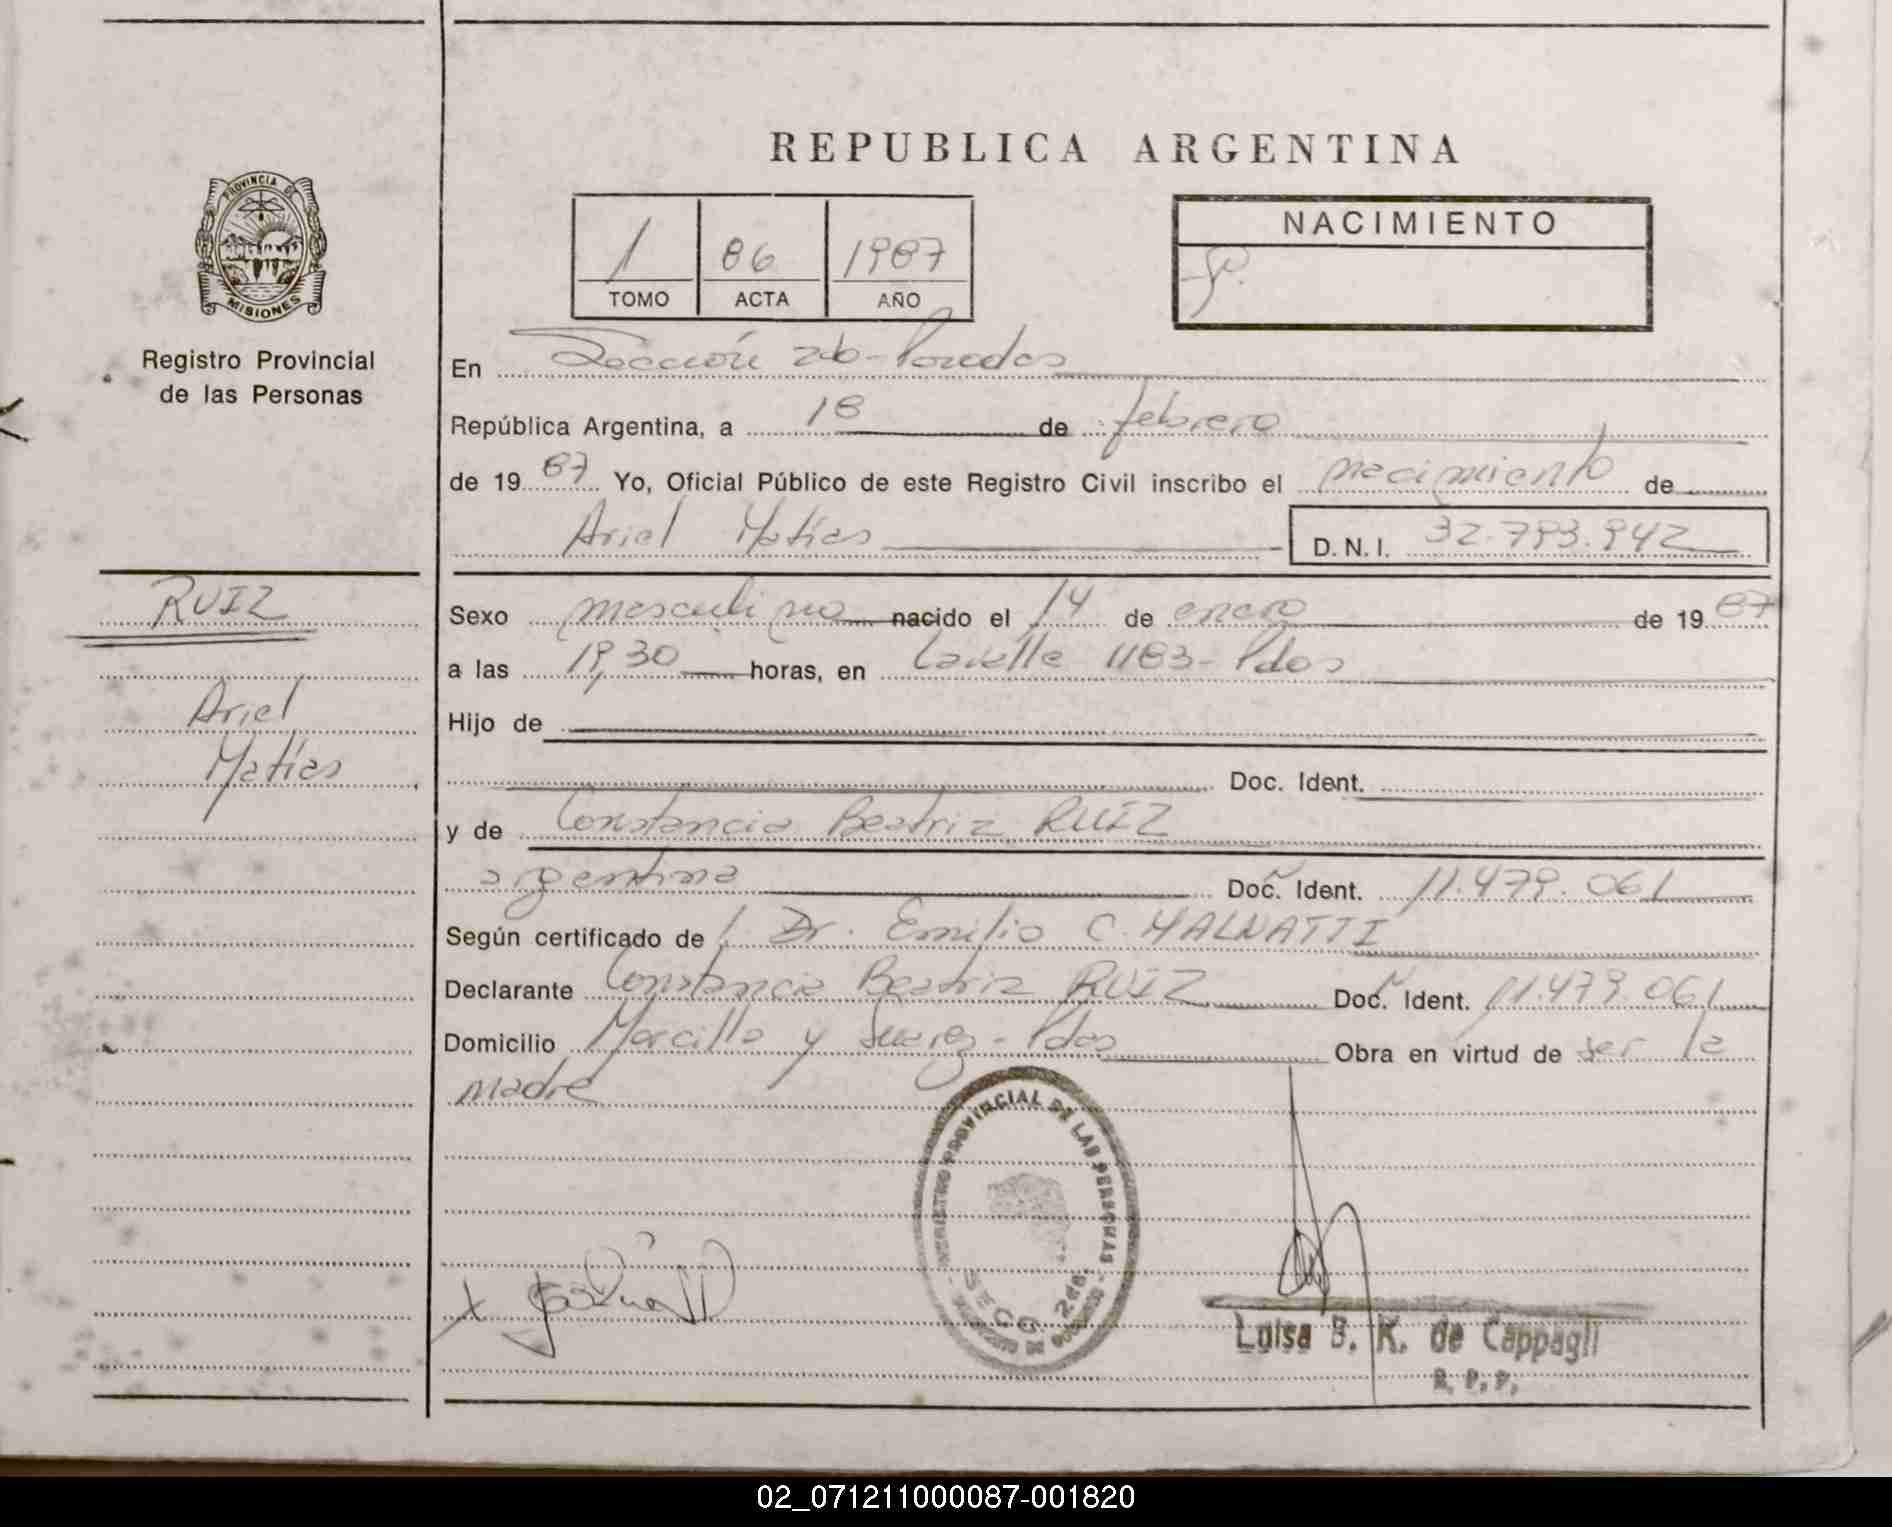 REPUBLICA ARGENTINA
PROVINCIA DE
MISIONES
Registro Provincial
de las Personas
1 86 1987
TOMO ACTA AÑO
NACIMIENTO
En Sección 2ib-Posadas
República Argentina, a 18 de febrero
de 1987 Yo, Oficial Público de este Registro Civil inscribo el nacimiento de
Ariel Matías D.N.I. 32.793.942
RUIZ
Ariel
Matías
Sexo masculino nacido el 14 de enero de 1987
a las 19,30 horas, en Lavalle 1183-Pdas
Hijo de
Doc. Ident.
y de Constancia Beatriz RUIZ
argentina Doc. Ident. 11.479.061
Según certificado de Dr. Emilio C. MALNATTI
Declarante Constancia Beatriz RUIZ Doc. Ident. 11.479.061
Domicilio Morcillo y Suarez-Pdas Obra en virtud de ser la
madre
REGISTRO PROVINCIAL DE LAS PERSONAS
Luisa B. K. de Cappagli
R. P. P.
02_071211000087-001820